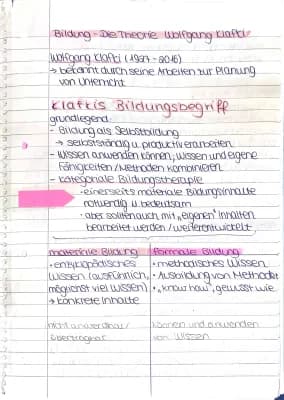 Bildung - Die Theorie Wolfgang Klafki
Wolfgang Klafki (1927 - 2016)
→ bekannt durch seine Arbeiten zur Planung
von Unterricht
Klafkis Bildungsbegriff
grundlegend:
- Bildung als Selbstbildung
→ selbstständig u. produktiv erarbeiten
- Wissen anwenden können, Wissen und eigene
Fähigkeiten / Methoden kombinieren
- kategoriale Bildungstherapie
· einerseits materiale Bildungsinhalte
notwendig u. bedeutsam
· aber sollten auch mit „eigenen" Inhalten
bearbeitet werden / weiterentwickelt
materiale Bildung
· enzyklopädisches
Wissen (ausführlich,
möglichst viel Wissen)
→ konkrete Inhalte
nicht anwendbar /
übertragbar
formale Bildung
· methodisches Wissen
· Ausbildung von Methoden
· „know how", gewusst wie
können und anwenden
von Wissen